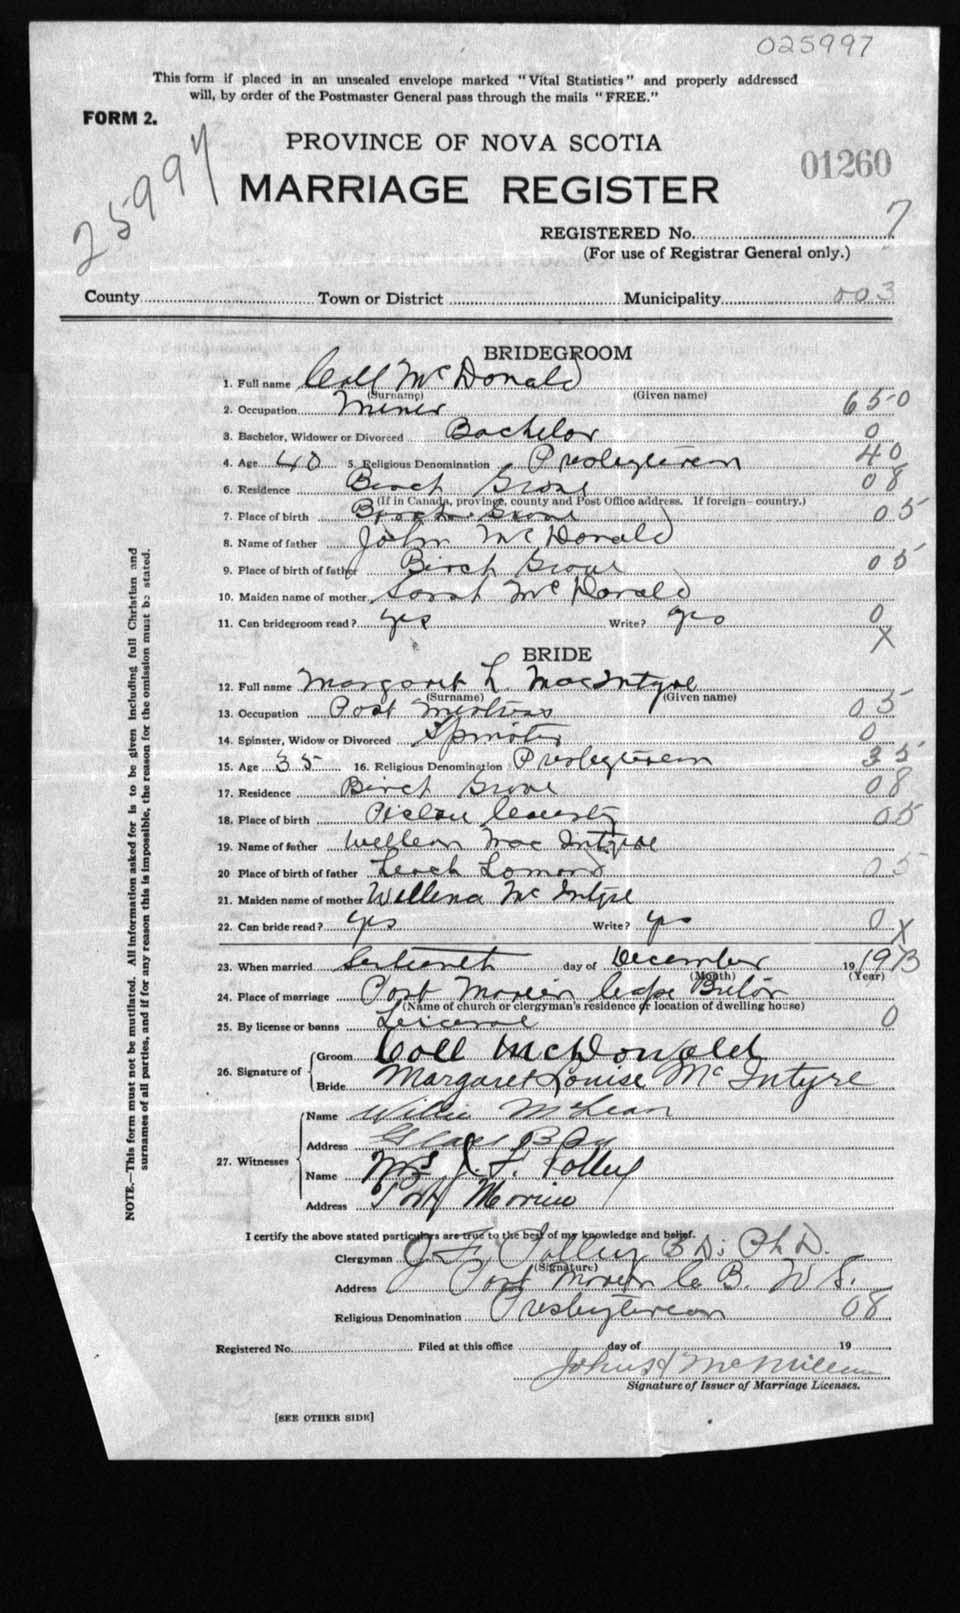 025997
This form if placed in an unsealed envelope marked "Vital Statistics" and properly addressed
will, by order of the Postmaster General pass through the mails "FREE."
FORM 2.
25997
PROVINCE OF NOVA SCOTIA
01260
MARRIAGE REGISTER
REGISTERED No. 7
(For use of Registrar General only.)
County Town or District Municipality 003
BRIDEGROOM
1. Full name Coll McDonald
(Surname) (Given name)
2. Occupation Miner 650
3. Bachelor, Widower or Divorced Bachelor 0
4. Age 40 5. Religious Denomination Presbyterean 40
6. Residence Birch Grove 08
(If in Canada, province, county and Post Office address. If foreign—country.)
7. Place of birth Birch Grove 05
8. Name of father John McDonald
9. Place of birth of father Birch Grove 05
10. Maiden name of mother Sarah McDonald
11. Can bridegroom read? yes Write? yes 0
X
BRIDE
12. Full name Margaret L. MacIntyre
(Surname) (Given name)
13. Occupation Post Mistress 05
14. Spinster, Widow or Divorced Spinster 0
15. Age 35 16. Religious Denomination Presbyterean 35
17. Residence Birch Grove 08
18. Place of birth Pictou County 05
19. Name of father William MacIntyre
20 Place of birth of father Loch Lomond 05
21. Maiden name of mother Willena McIntyre
22. Can bride read? yes Write? yes 0
X
23. When married day of December 19
(Month) (Year)
24. Place of marriage Port Morien Cape Breton
(Name of church or clergyman's residence or location of dwelling house)
25. By license or banns 0
26. Signature of Groom Coll McDonald
Bride Margaret Louise McIntyre
27. Witnesses Name Willie McLean
Address Glace Bay
Name Mrs J. F. Polley
Address Port Morien
I certify the above stated particulars are true to the best of my knowledge and belief.
Clergyman J. F. Polley B D; Ph. D.
(Signature)
Address Port Morien C. B. N S.
Religious Denomination Presbyterean 08
Registered No. Filed at this office day of 19
McMillan
Signature of Issuer of Marriage Licenses.
[SEE OTHER SIDE]
NOTE.—This form must not be mutilated. All information asked for is to be given including full Christian and
surnames of all parties, and if for any reason this is impossible, the reason for the omission must be stated.